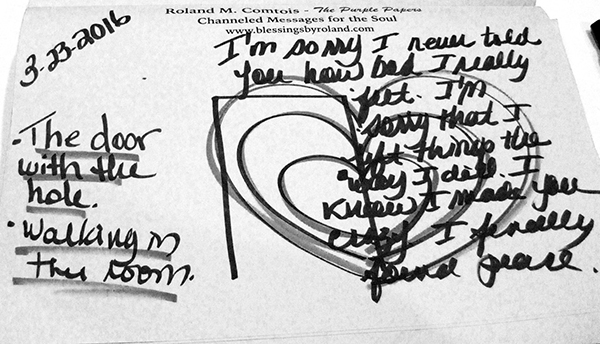 Roland M. Comtois - The Purple Papers
Channeled Messages for the Soul
www.blessingsbyroland.com
3-23-2016
I'm sorry I never told
you how bad I really
felt. I'm
sorry that I
left things the
way I did. I
know I made you
crazy I finally
found peace.
• The door
with the
hole.
• Walking in
the room.